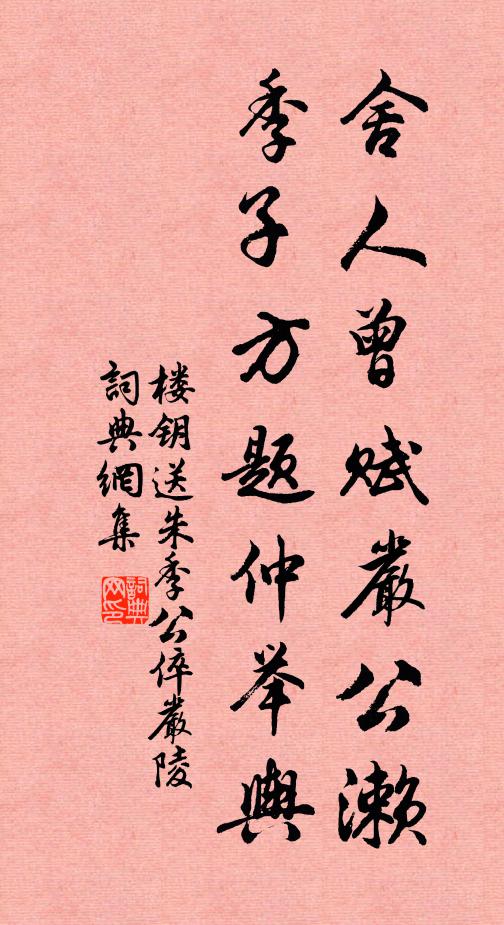 舍人曾赋嚴公濑
季子方题仲举輿
楼钥送朱季公倅嚴陵
詞典網集
詞典网印